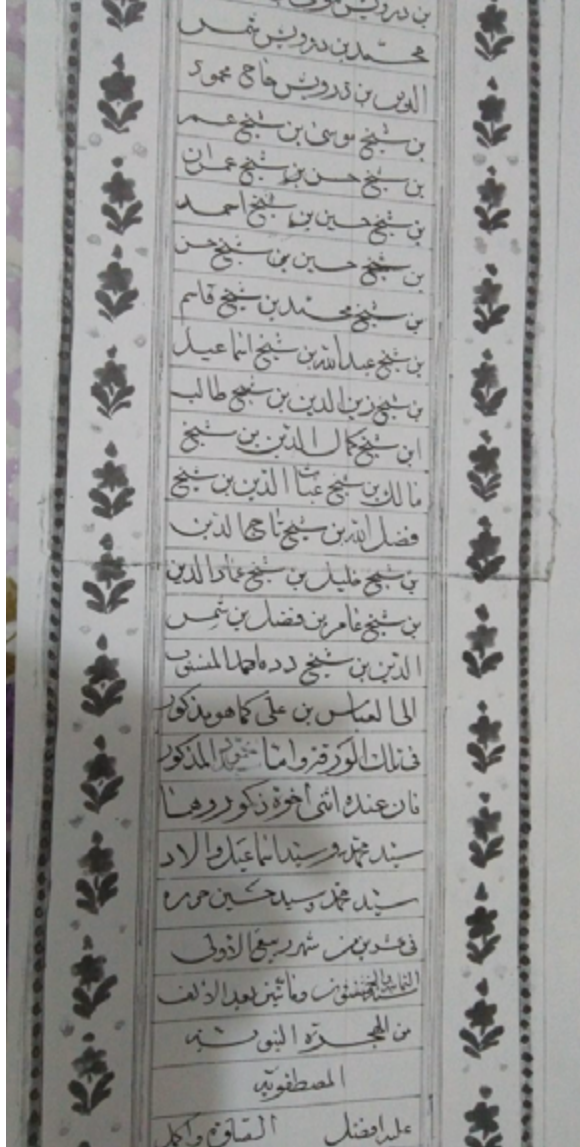 بن درويش
محمد بن درويش شمس
الدين بن درويش حاج محمود
بن شيخ موسى بن شيخ عمر
بن شيخ حسن بن شيخ عمران
بن شيخ حسين بن شيخ احمد
بن شيخ حسين بن شيخ حسن
بن شيخ محمد بن شيخ قاسم
بن شيخ عبدالله بن شيخ اسماعيل
بن شيخ زين الدين بن شيخ طالب
ابن شيخ كمال الدين بن شيخ
مالك بن شيخ غياث الدين بن شيخ
فضل الله بن شيخ تاج الدين
بن شيخ خليل بن شيخ عماد الدين
بن شيخ عامر بن فضل بن شمس
الدين بن شيخ دده احمد المنسوب
الى العباس بن علي كما هو مذكور
في تلك الورقة واما المذكور
فان عنده اثنى اخوة ذكور وهما
سيد محمد وسيد اسماعيل والاد
سيد محمد وسيد حسين حرره
في عشرين من شهر ربيع الاولى
ومأتين بعد الالف
من الهجرة النبوية
المصطفوية
على افضل الصلوة واكمل